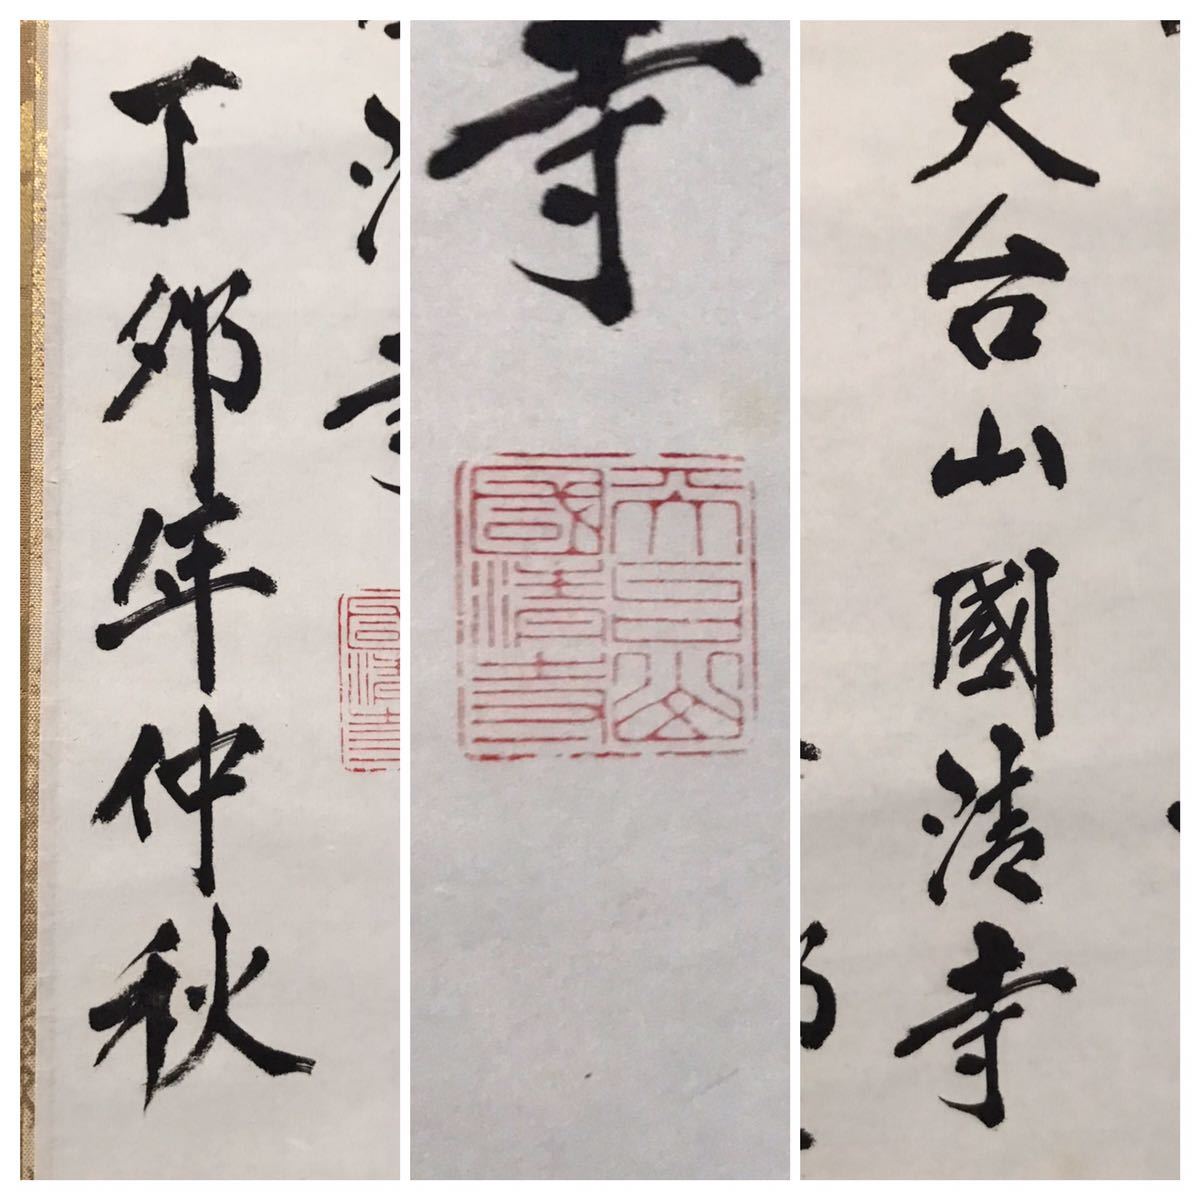 天台山國清寺
寺
天台山
國清寺
丁卯年仲秋